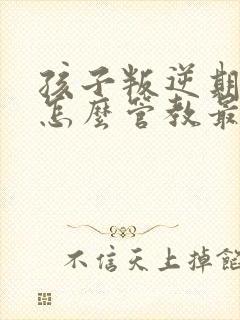 孩子叛逆期
怎麼管教最
不信天上掉餡